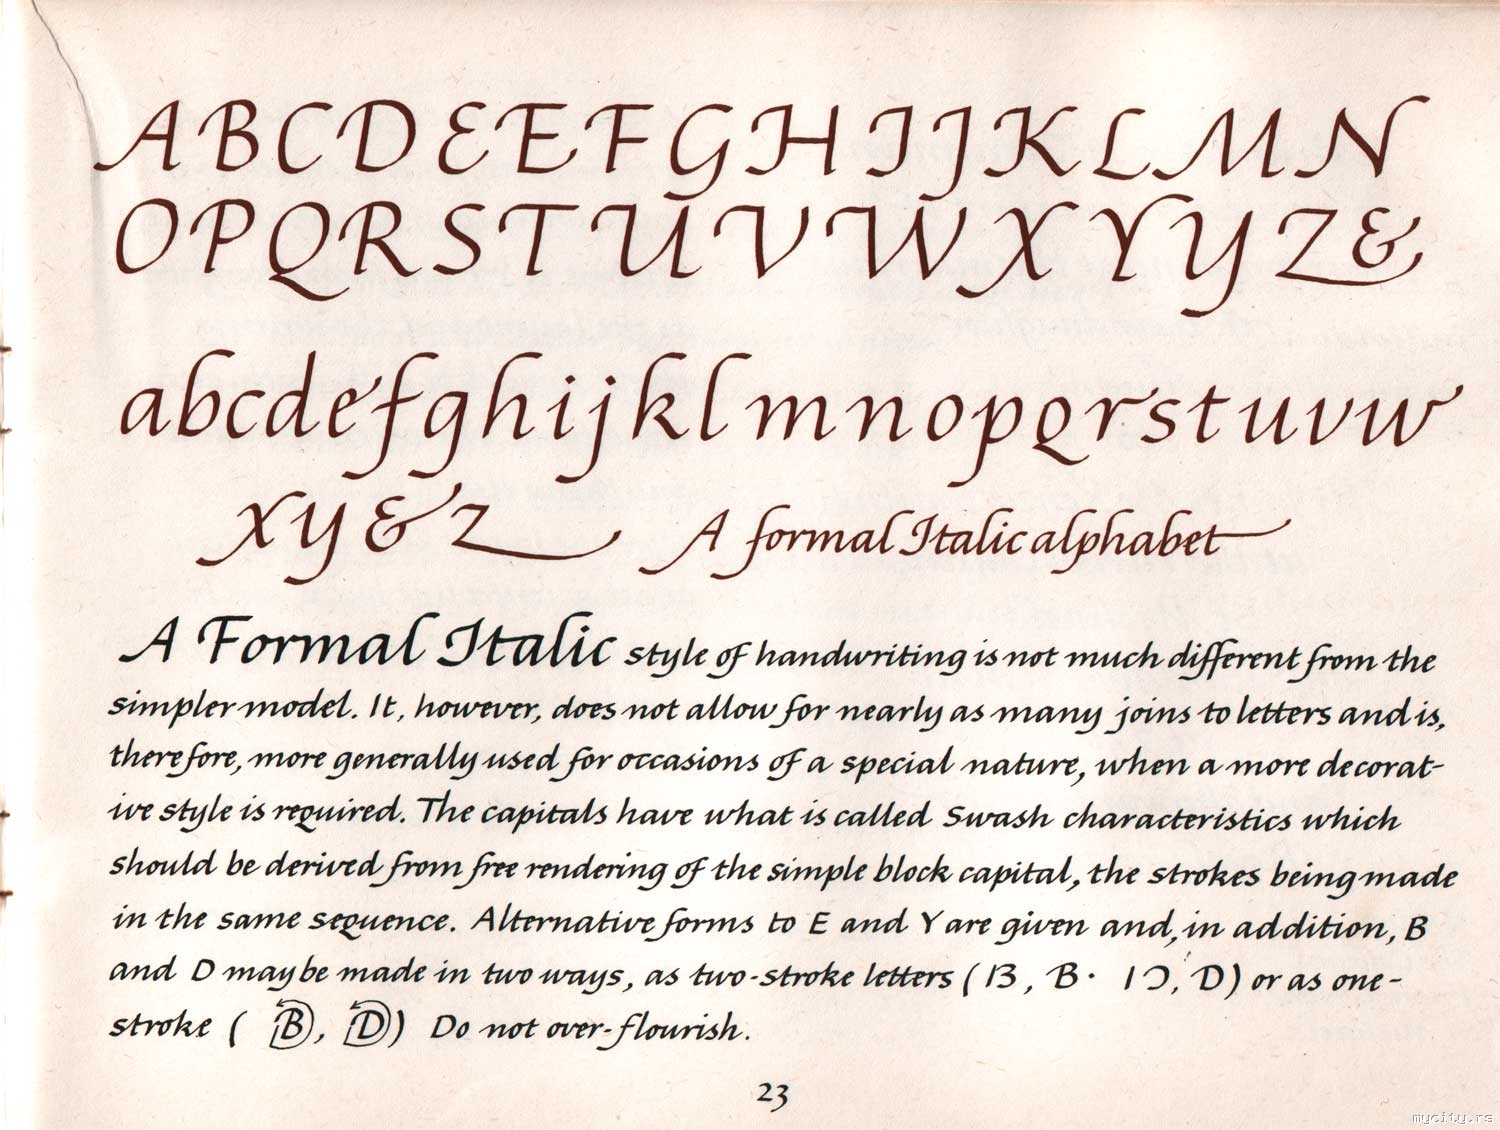 A B C D E E F G H I J K L M N
O P Q R S T U V W X Y Y Z &
a b c d e f g h i j k l m n o p q r s t u v w
x y & z A formal Italic alphabet
A Formal Italic style of handwriting is not much different from the
simpler model. It, however, does not allow for nearly as many joins to letters and is,
therefore, more generally used for occasions of a special nature, when a more decorat-
ive style is required. The capitals have what is called Swash characteristics which
should be derived from free rendering of the simple block capital, the strokes being made
in the same sequence. Alternative forms to E and Y are given and, in addition, B
and D may be made in two ways, as two-stroke letters (I3, B· IƆ, D) or as one-
stroke ( B, D) Do not over-flourish.
23
mycity.rs